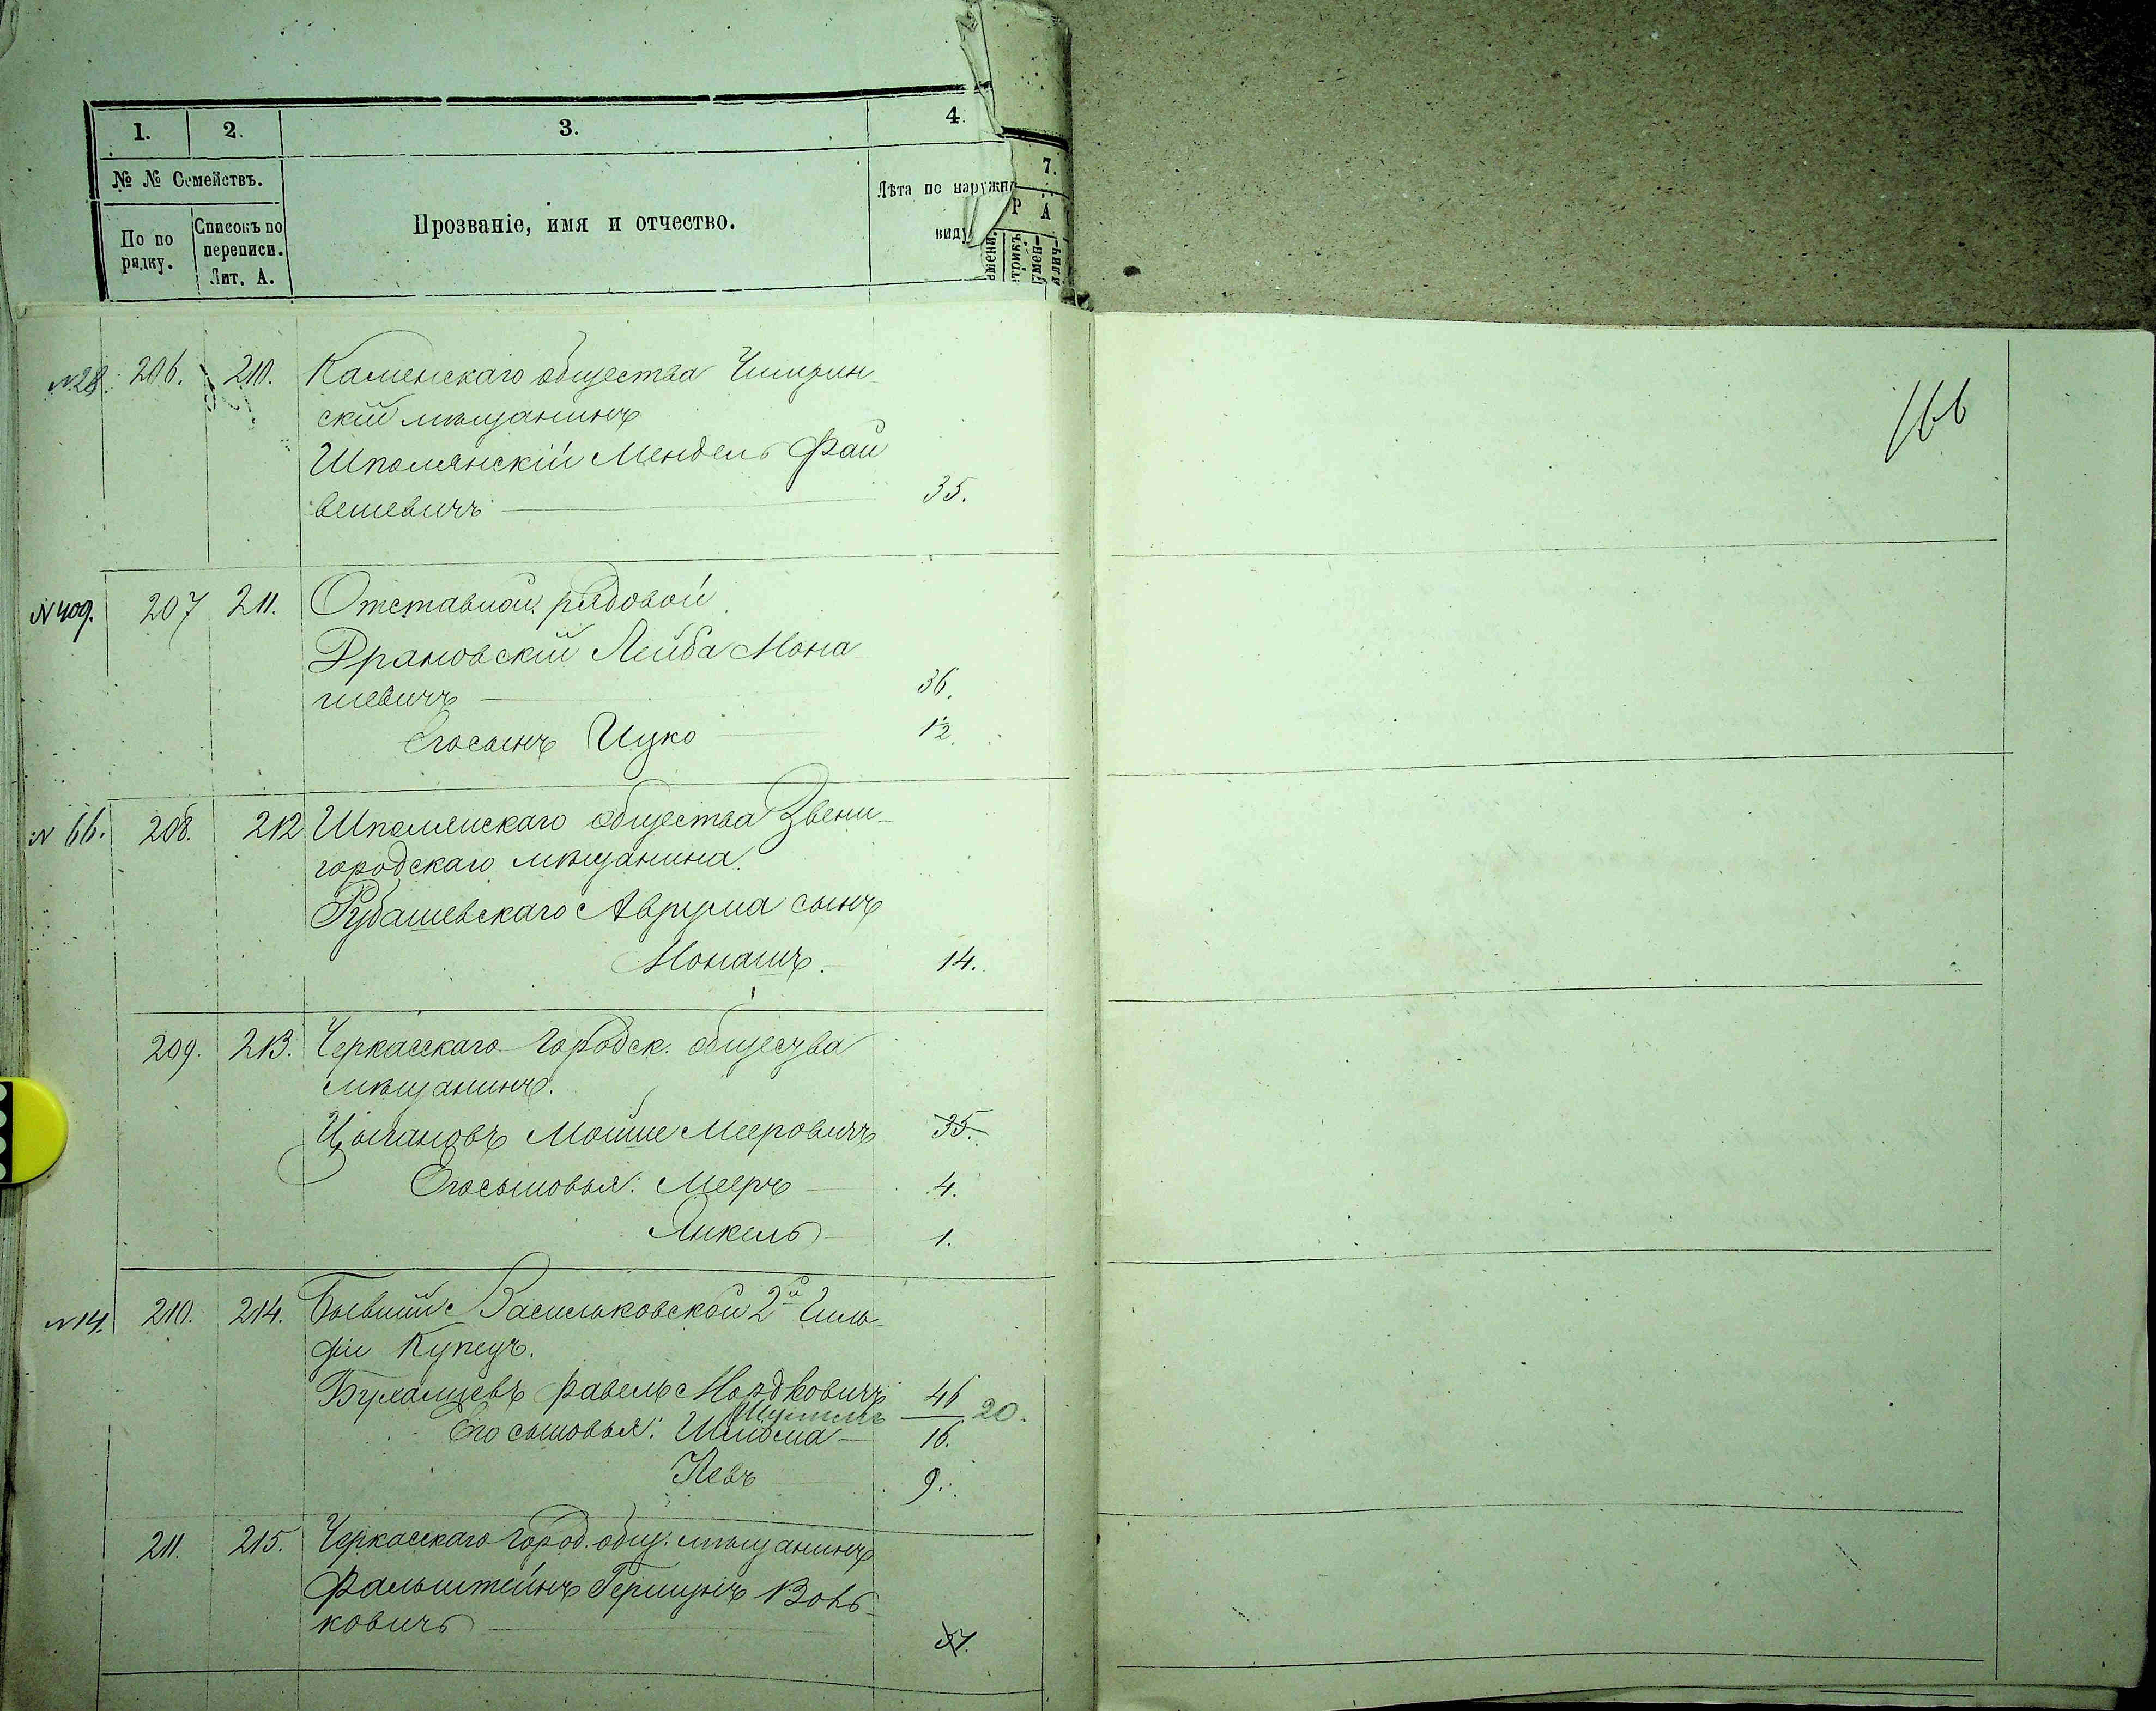 1. 2. 3. 4. 7.
№ № Семействъ.
Прозваніе, имя и отчество.
Лѣта по наружн
виду
По по
рядку.
Списокъ по
переписи.
Лит. А.
Р А
166
N 28. 206. 210. Каменскаго общества Чигирин
скій мѣщанинъ
Шполянскій Мендель Фай
вешевичъ 35.
N 409. 207 211. Отставной рядовой
Драновскій Лейба Мона
шевичъ 36.
Его сынъ Ицко 12.
N 66. 208. 212 Шполянскаго общества Звени-
городскаго мѣщанина
Рубашевскаго Аврума сынъ
Монашъ. 14.
209. 213. Черкасскаго городск. общества
мѣщанинъ.
Цыгановъ Мойше Мееровичъ 35.
Его сыновья: Мееръ 4.
Янкель 1.
N 14. 210. 214. Бывшій Васильковской 2й Гиль-
діи Купецъ.
Бухалцевъ Фавель Мордковичъ 46
20.
Его сыновья: Шлома 16.
Левъ 9.
211. 215. Черкасскаго город. общ. мѣщанинъ
Фальштейнъ Гершунъ Воль-
ковичъ 37.